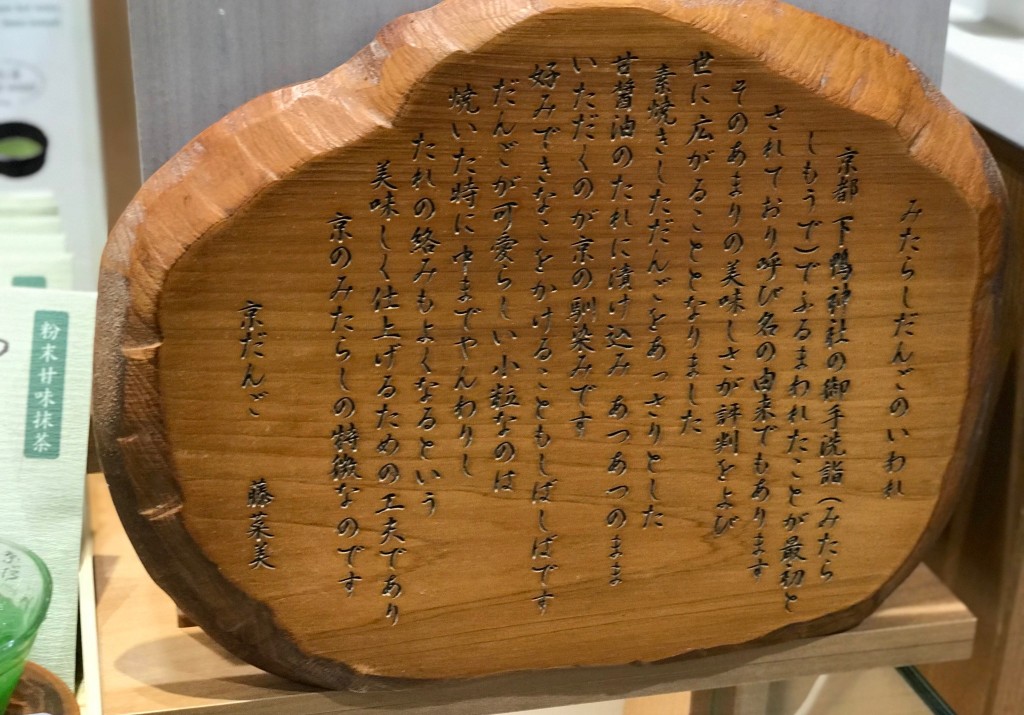 みたらしだんごのいわれ
京都 下鴨神社の御手洗詣(みたら
しもうで)でふるまわれたことが最初と
されており呼び名の由来でもあります
そのあまりの美味しさが評判をよび
世に広がることとなりました
素焼きしただんごをあっさりとした
甘醤油のたれに漬け込み あつあつのまま
いただくのが京の馴染みです
好みできなこをかけることもしばしばです
だんごが可愛らしい小粒なのは
焼いた時に中までやんわりし
たれの絡みもよくなるという
美味しく仕上げるための工夫であり
京のみたらしの特徴なのです
京だんご 藤菜美
粉末甘味抹茶